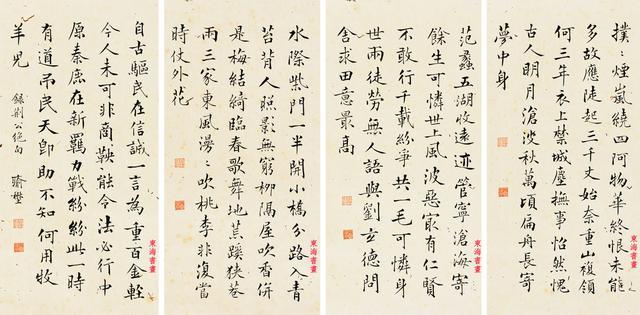 撲〻煙嵐繞四阿物華終恨未能
多故應陡起三千丈始奈重山複領
何三年衣上禁城塵撫事怡然愧
古人明月滄波秋萬頃扁舟長寄
夢中身
東海書畫
范蠡五湖收遠迹管寧滄海寄
餘生可憐世上風波惡冣有仁賢
不敢行千載紛爭共一毛可憐身
世兩徒勞無人語與劉玄德問
舍求田意最高
東海書畫
水際柴門一半開小橋分路入青
苔背人照影無窮柳隔屋吹香併
是梅結綺臨春歌舞地荒蹊狹巷
兩三家東風漫〻吹桃李非復當
時仗外花
東海書畫
自古驅民在信誠一言為重百金輕
今人未可非商鞅能令法必行中
原秦鹿在新羈力戰紛紛此一時
有道弔民天即助不知何用牧
羊兒 錄荆公絕句
東海書畫